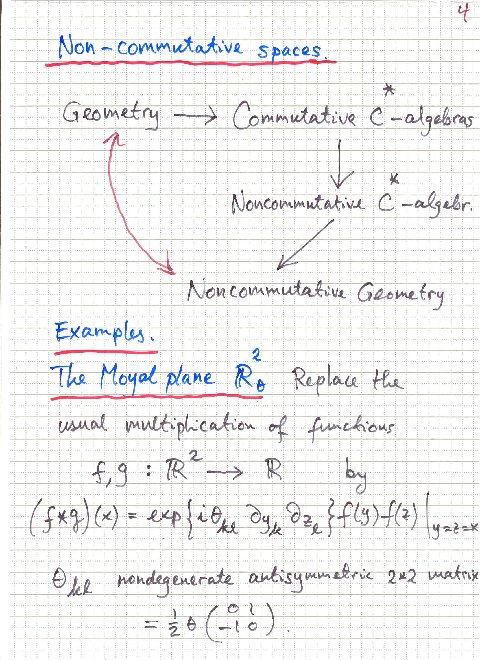 4
Non-commutative spaces.
Geometry → Commutative C*-algebras
Noncommutative C*-algebr.
Noncommutative Geometry
Examples.
The Moyal plane ℝ²_θ Replace the
usual multiplication of functions
f, g : ℝ² → ℝ by
(f*g)(x) = exp{iθ_kl ∂y_k ∂z_l} f(y) f(z) |_y=z=x
θ_kl nondegenerate antisymmetric 2×2 matrix
= 1/2 θ (0 1
-1 0).